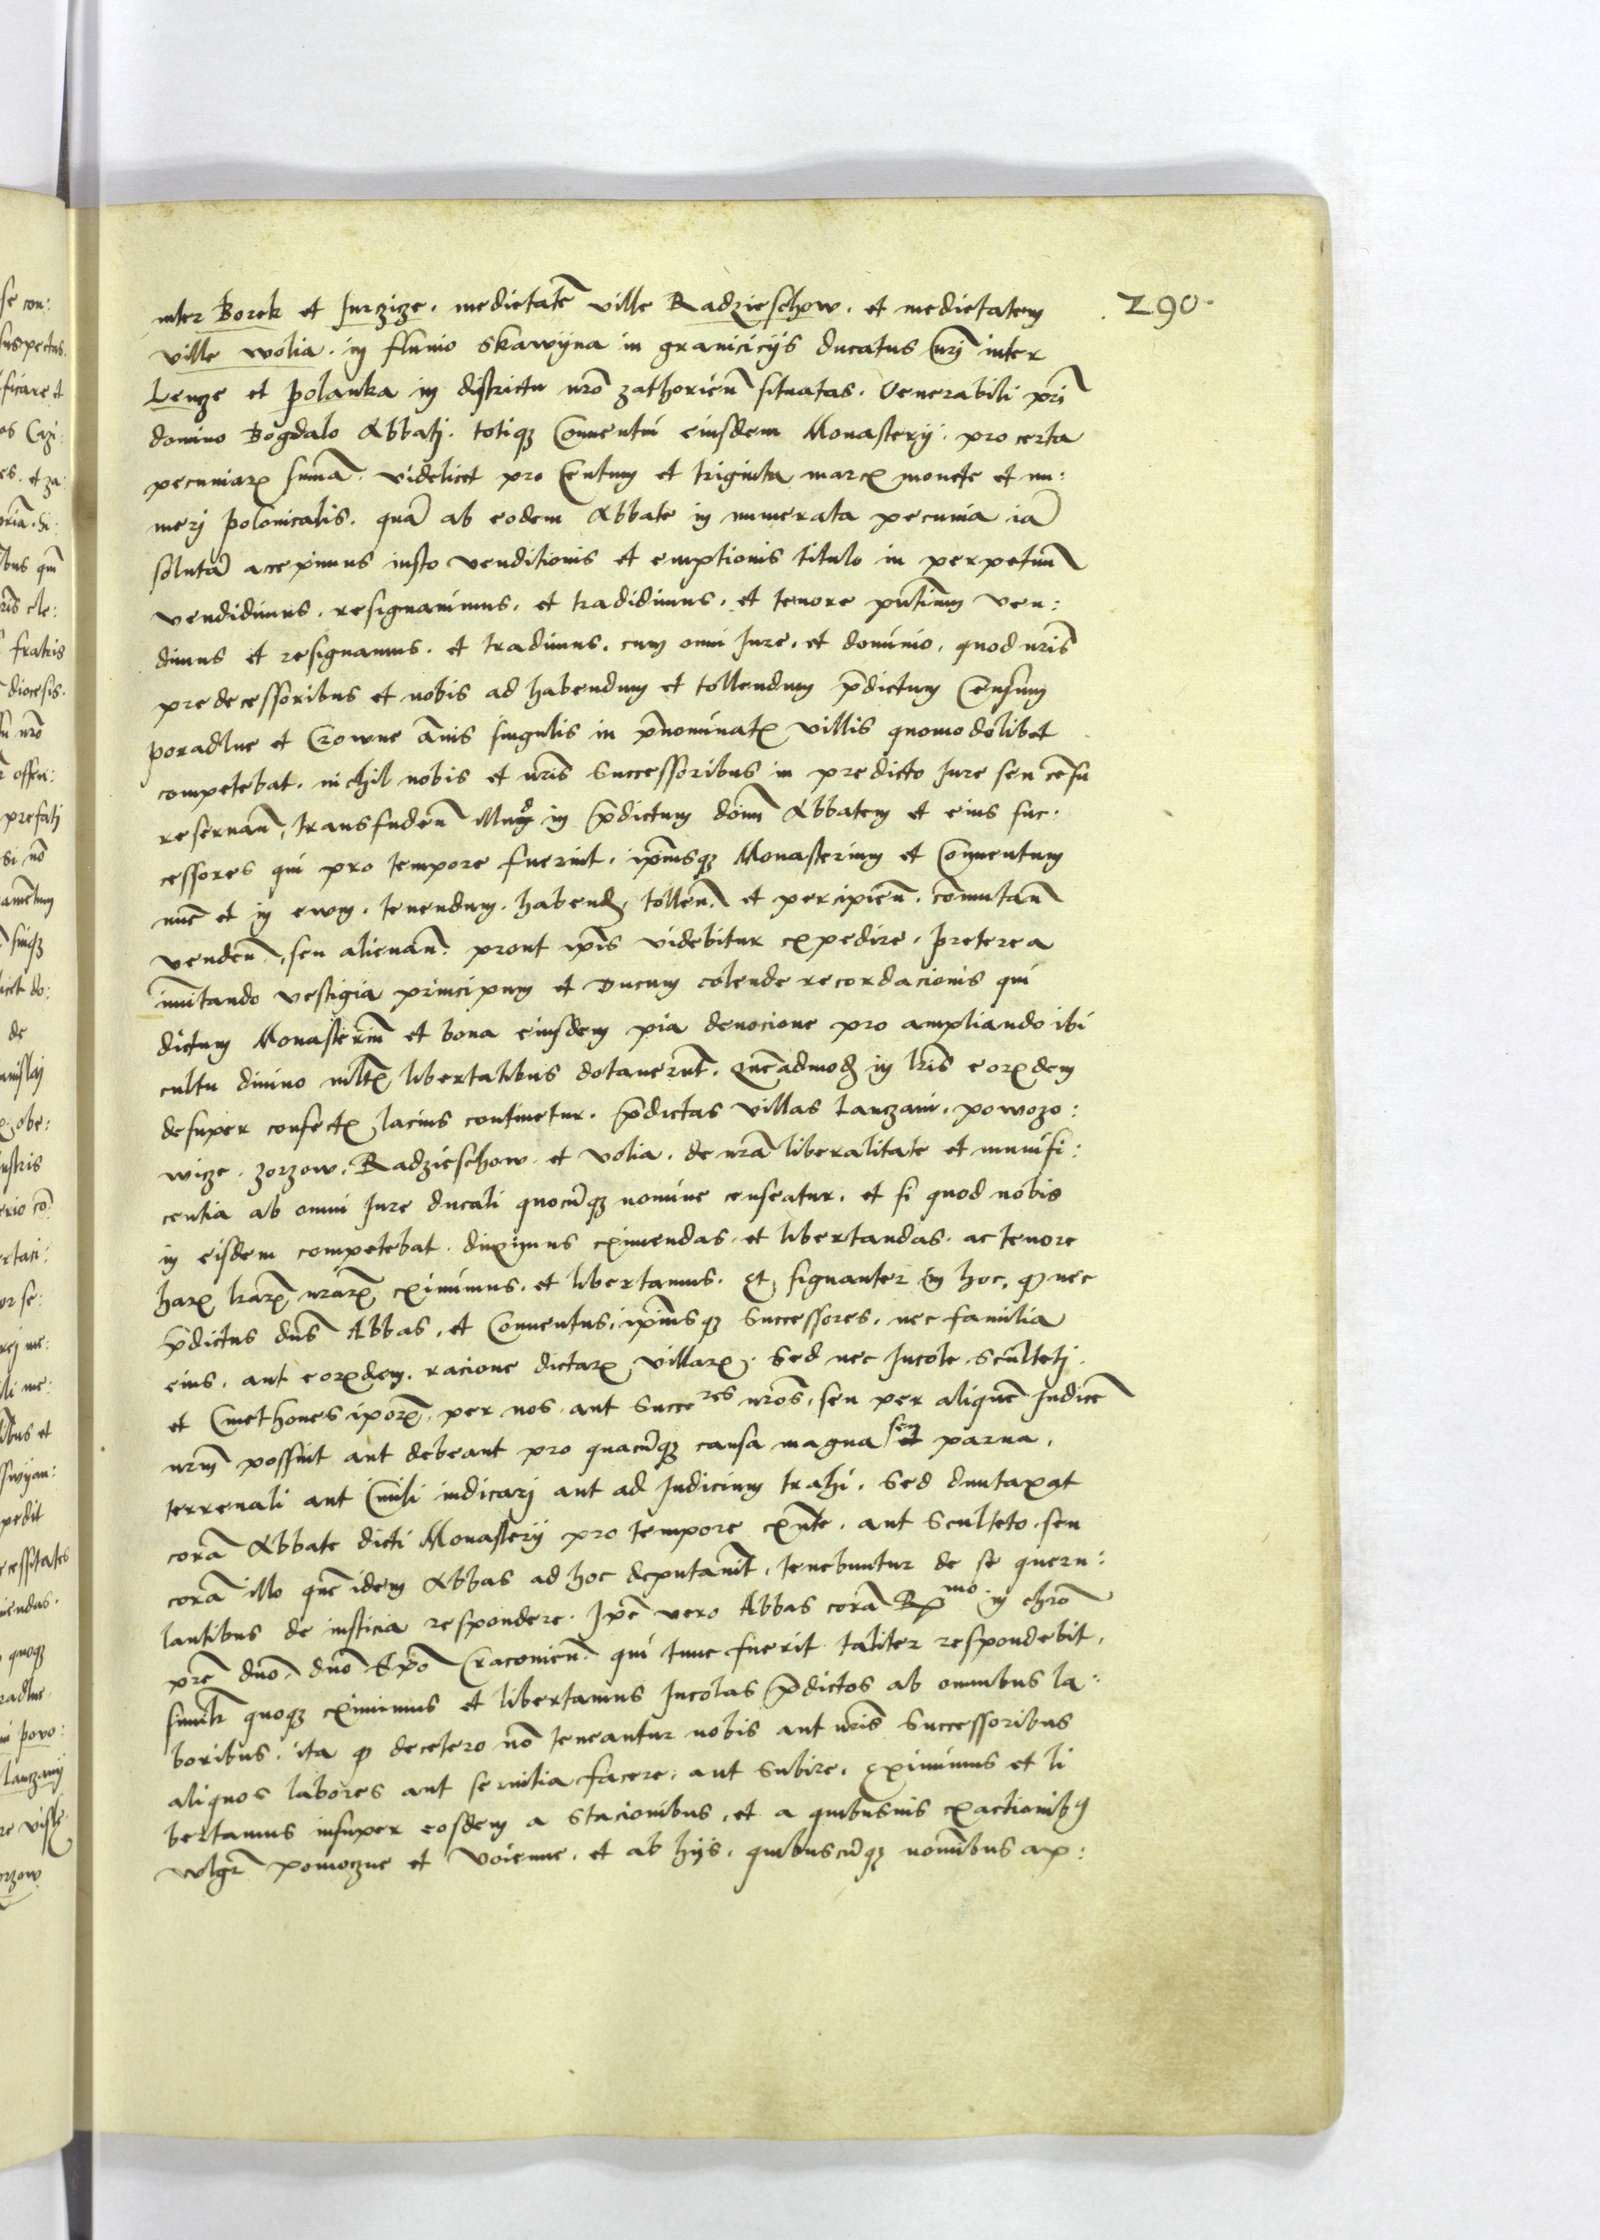 290.
inter Borek et Jurzize. medietatē ville Radzieschow. et medietatem
ville wolia. in fluuio Skawyna in graniciciis ducatus nr̄i inter
Lenze et Polanka in districtu nr̄o zathorieñ situatas. Venerabili pr̄i
domino Bogdalo Abbati. totiq₃ Conuentui eiusdem Monasterij. pro certa
pecuniarꝝ sum̄a. videlicet pro Centum et triginta marcꝭ monete et nu:
meri polonicalis. quā ab eodem Abbate in numerata pecunia iā
solutā accepimus iusto venditionis et emptionis titulo in perpetuū
vendidimus. resignauimus. et tradidimus. et tenore pn̄tium ven:
dimus et resignamus. et tradimus. cum omni Jure. et dominio. quod nr̄is
predecessoribus et nobis ad habendum et tollendum p̄dictum Censum
poradlne et Crowne ān̄is singulis in p̄nominatꝭ villis quomodolibet
competebat. nichil nobis et nr̄is Successoribus in predicto Jure seu cēsu
reseruañ, transfudeñ illud in p̄dictum dom̄ Abbatem et eius suc:
cessores qui pro tempore fuerint. ip̄iusq₃ Monasterium et Conuentum
nūc et in ewm. tenendum. habend, tolleñ. et percipieñ. com̄utañ
vendeñ, seu alienañ. prout ip̄is videbitur expedire. Preterea
im̄itando vestigia principum et Ducum colende recordacionis qui
dictum Monasteriū et bona eiusdem pia deuocione pro ampliando ibi
cultu diuino ml̄tꝭ libertatibus dotauerūt. Quēadmod in lr̄is eorꝝdem
desuper confectꝭ lacius continetur. p̄dictas villas Lanczani. powozo:
wize. zorzow. Radzieschow et volia. de nr̄a liberalitate et munifi:
centia ab omni Jure ducali quocūq₃ nomine censeatur. et si quod nobis
in eisdem competebat. duximus eximendas. et libertandas. ac tenore
harꝝ lr̄arꝝ nr̄arꝝ eximimus. et libertamus. Et signanter in hoc, ꝙ nec
p̄dictus dn̄s Abbas, et Conuentus, ip̄iusq₃ Successores. nec familia
eius. aut eorꝝdem. racione dictarꝝ villarꝝ. Sed nec Incole Sculteti.
et Cmethones ip̄orꝝ. per nos. aut Succeres nr̄os, seu per aliquē Iudicē
nr̄m possint aut debeant pro quacūq₃ causa magna seu parua,
terrenali aut Ciuili iudicari aut ad Iudicium trahi. Sed duntaxat
corā Abbate dicti Monasterij pro tempore exn̄te. aut Sculteto. seu
corā illo quē idem Abbas ad hoc deputauit, tenebuntur de se queru:
lantibus de iusticia respondere. Ip̄e vero Abbas corā Rmo in chro
pr̄e dn̄o. dn̄o Ep̄o Cracouieñ. qui tunc fuerit taliter respondebit.
similr̄ quoq₃ eximimus et libertamus Incolas p̄dictos ab omnibus la:
boribus. ita ꝙ decetero nō teneantur nobis aut nr̄is Successoribus
aliquos labores aut seruitia facere. aut Subire. Eximimus et li
bertamus insuper eosdem a Stacionibus, et a quibusuis exactionibꝰ
wlgr̄ pomoczne et voienne. et ab hijs. quibuscūq₃ nominibus ap: